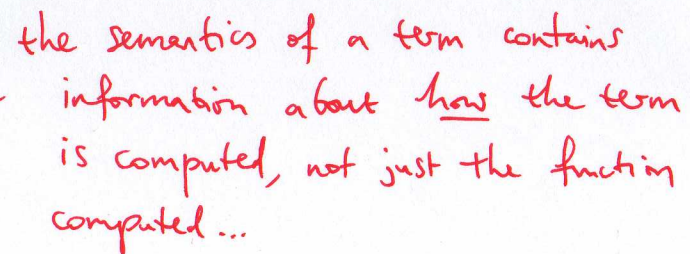 the semantics of a term contains
information about how the term
is computed, not just the function
computed...